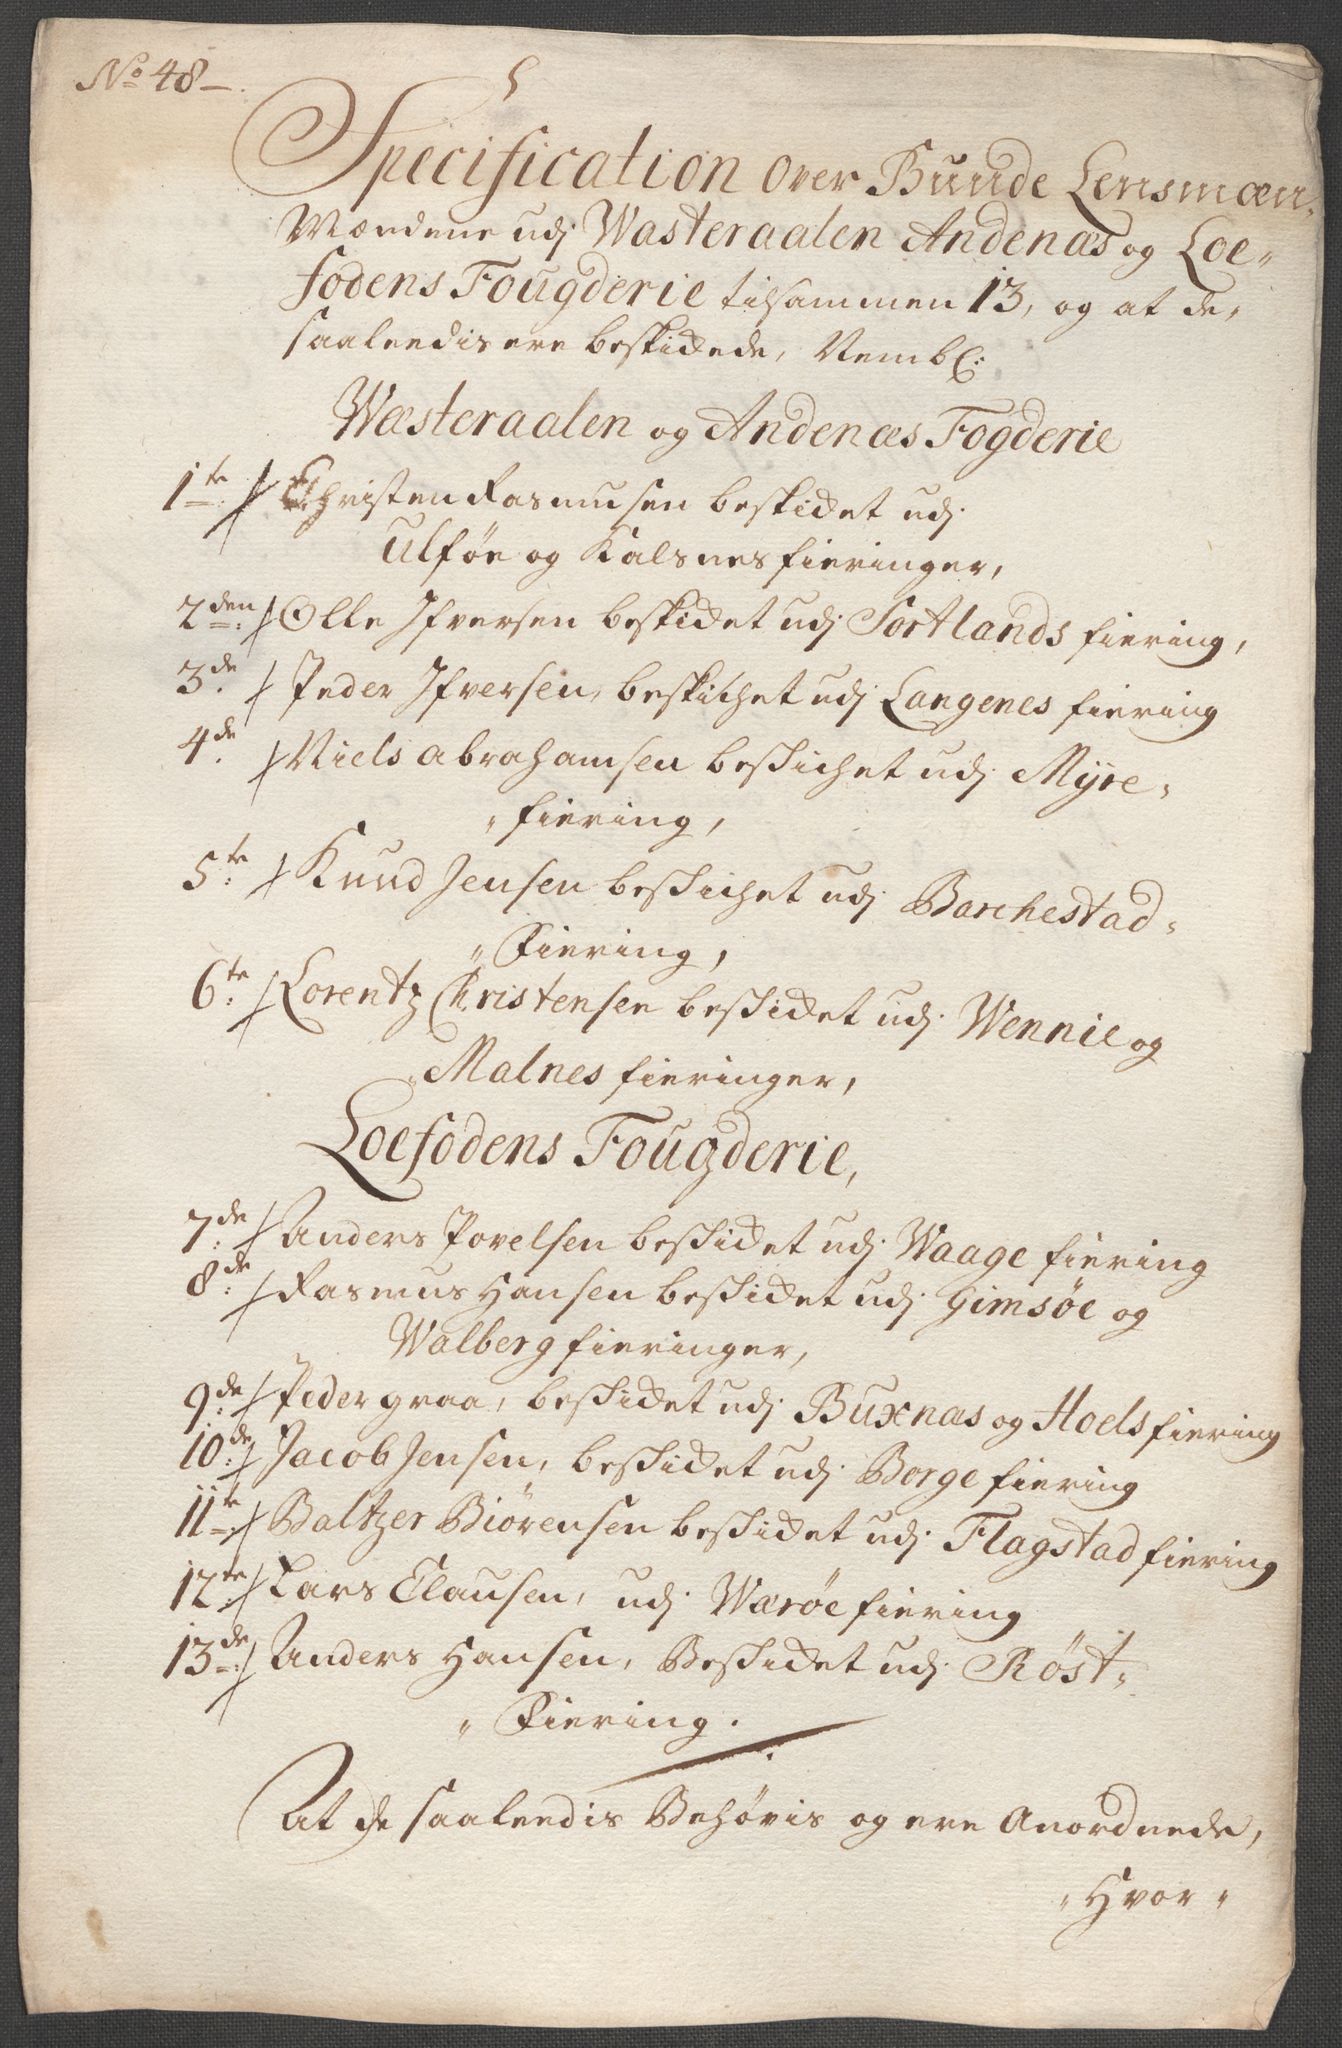 No 48 –.
Specification over Bunde Lensmæn,
Mændene udj Wasteraalen Andenæs og Loe„
fodens Fougderie tilsammen 13, og at de,
saaleedis ere beskidede, Nembl:
Wæsteraalen og Andenæs Fogderie
1te Christen Rasmusen beskidet udj
Ulføe og Kalsnes fieringer,
2den Olle Ifversen beskidet udj Sortlands fiering,
3de Peder Ifversen, beskichet udj Langenes fiering
4de Niels Abrahamsen beskichet udj Myre„
„fiering,
5te Knud Jensen beskichet udj Barchestad„
„Fiering,
6te Lorentz Christensen beskidet udj Wennie og
„Malnes fieringer,
Loefodens Fougderie,
7de Anders Povelsen beskidet udj Waage fiering
8de Rasmus Hansen beskidet udj Gimsøe og
Walberg fieringer,
9de Peder Graa, beskidet udj Buxnæs og Hoels fiering
10de Jacob Jensen, beskidet udj Borge fiering
11te Baltzer Biørensen beskidet udj Flagstad fiering
12te Lars Clausen, udj Wærøe fiering
13de Anders Hansen, Beskidet udj Røst„
„Fiering.
At de saaleedis Behøvis og ere Anordnede,
„Hvor„